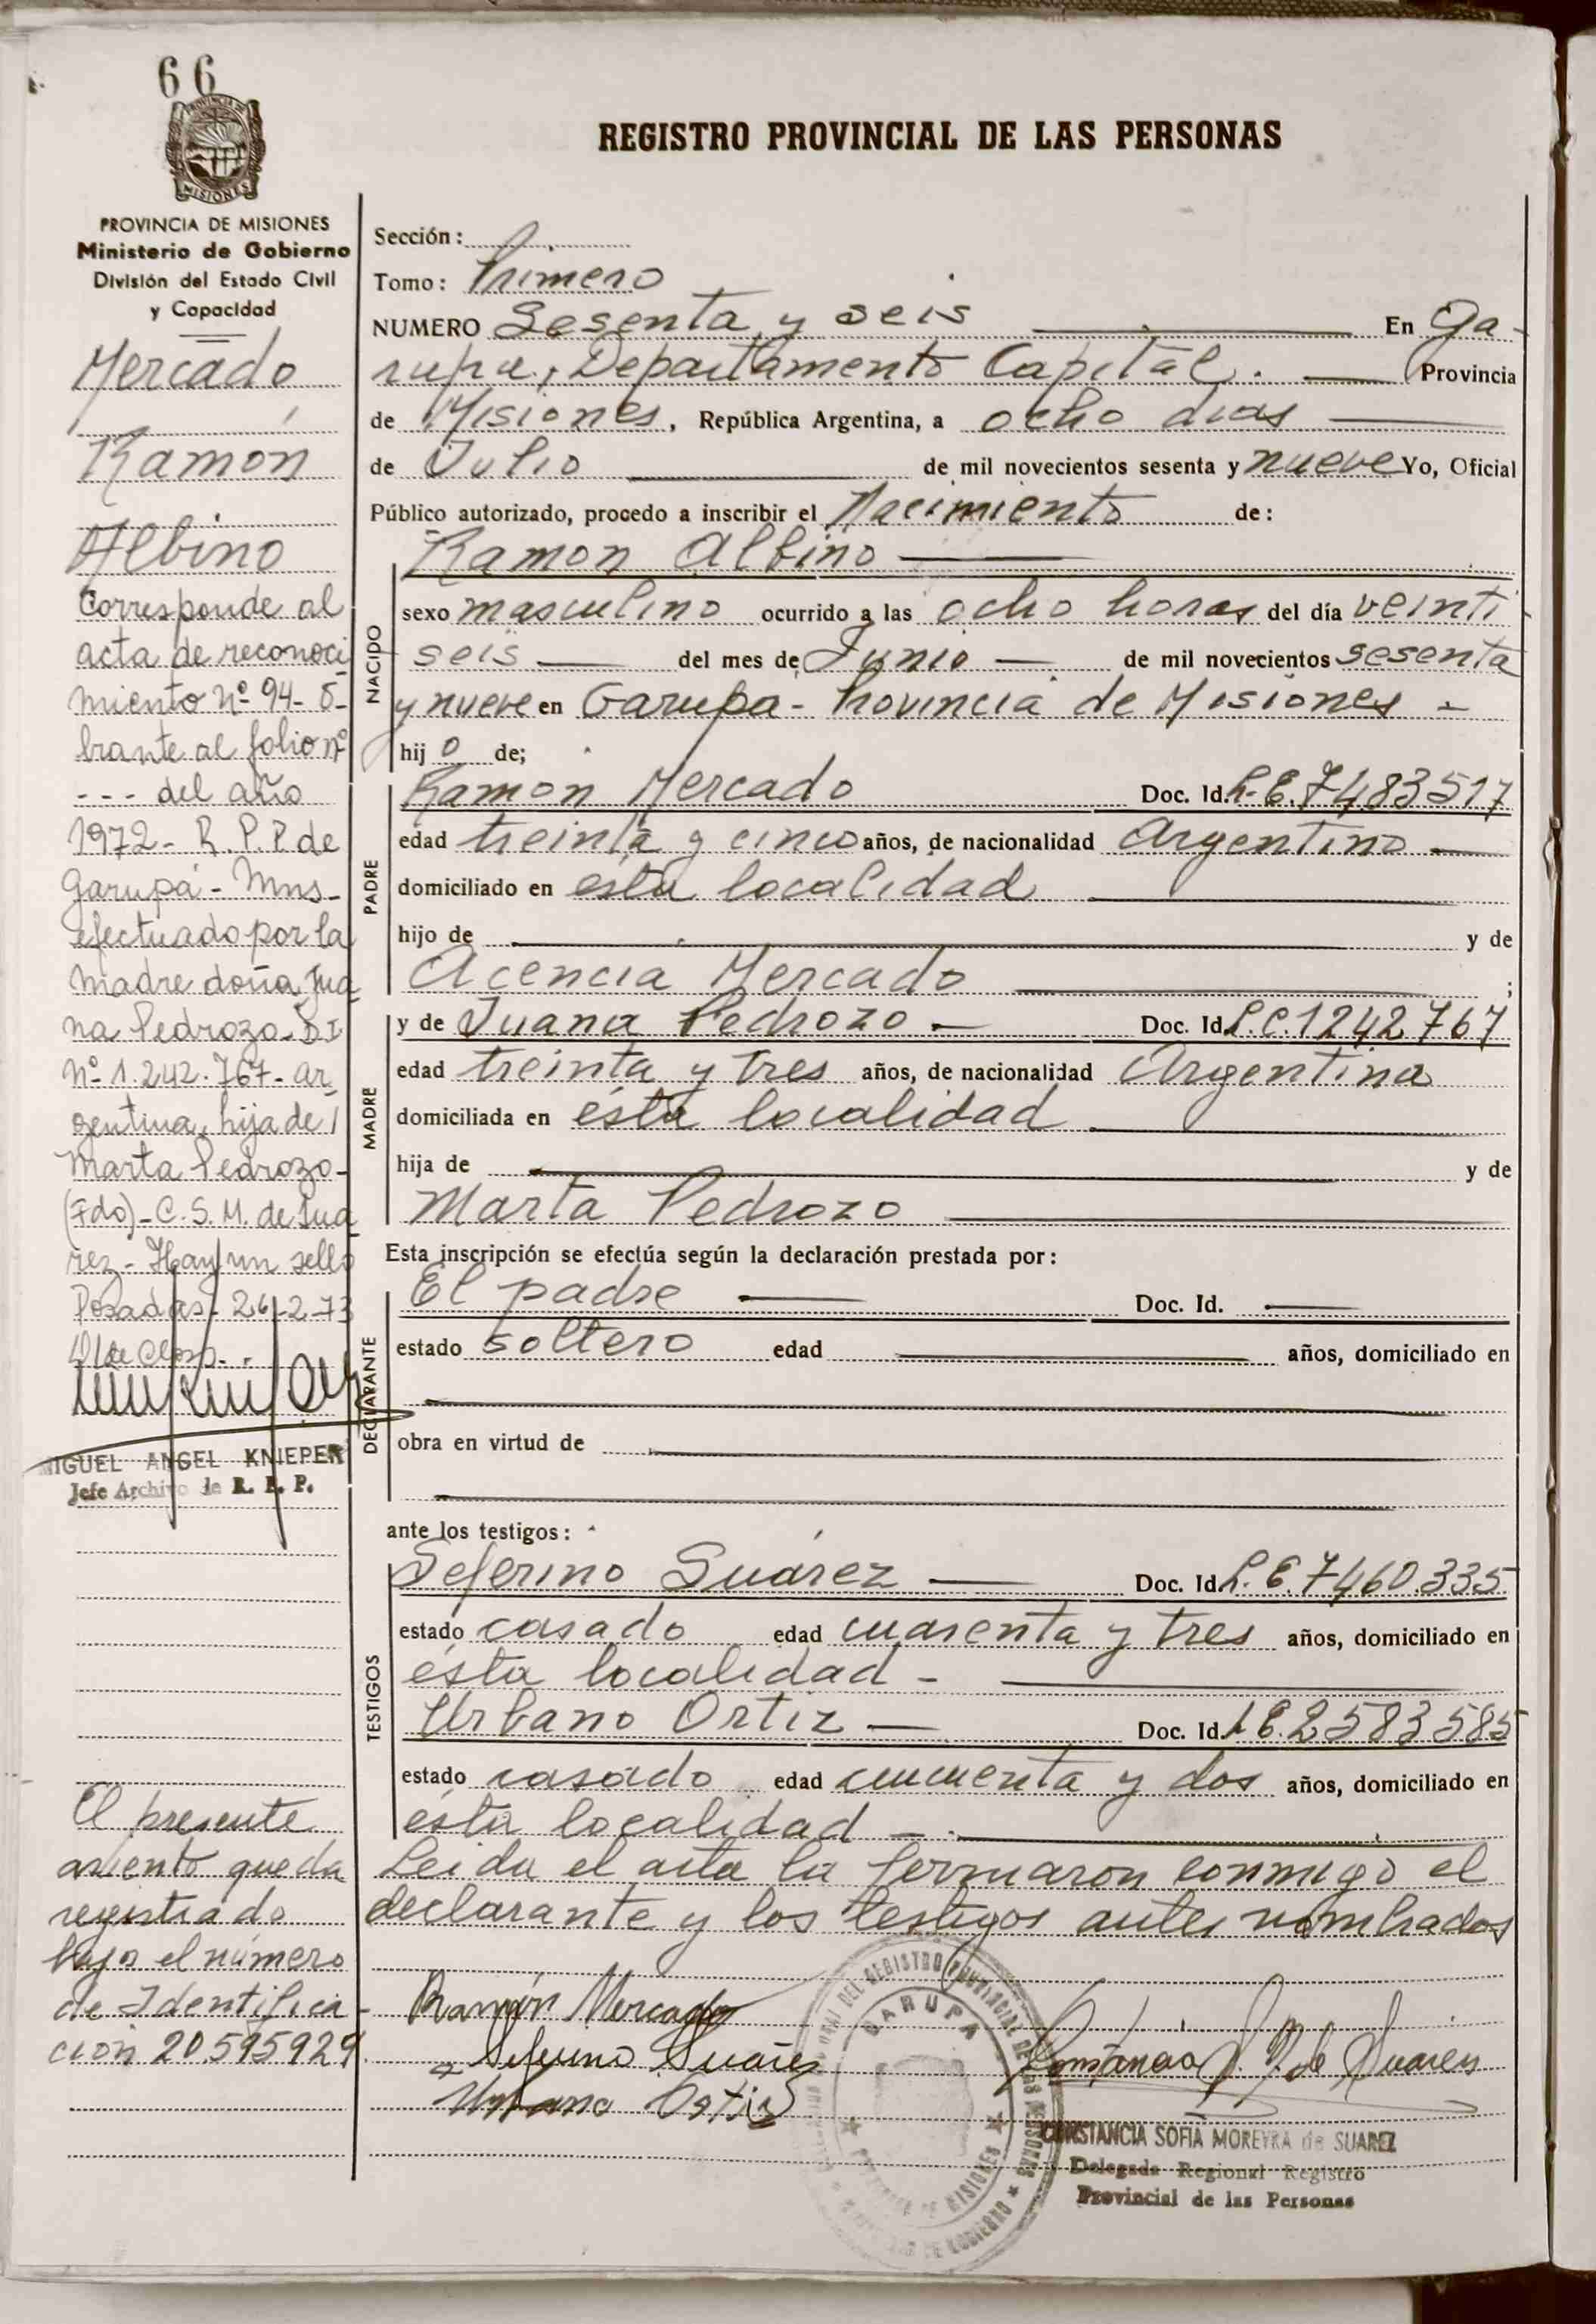 66
PROVINCIA DE
MISIONES
REGISTRO PROVINCIAL DE LAS PERSONAS
PROVINCIA DE MISIONES
Ministerio de Gobierno
División del Estado Civil
y Capacidad
Mercado
Ramón
Albino
Corresponde al
acta de reconoci
miento nº 94- o-
brante al folio nº
--- del año
1972- R. P. P. de
Garupá- Mns-
efectuado por la
madre doña Jua
na Pedrozo- DI
Nº 1.242.767- ar
gentina, hija de
Marta Pedrozo-
(Fdo)- C. S. M. de Sua
rez- Hay un sello
Posadas- 26-2-73
MIGUEL ANGEL KNIEPER
Jefe Archivo de R. P. P.
El presente
asiento queda
registrado
bajo el número
de Identifica-
ción 20.595929
Sección:
Tomo: Primero
NUMERO Sesenta y seis En Ga-
rupa, Departamento Capital. Provincia
de Misiones, República Argentina, a ocho dias
de Julio de mil novecientos sesenta y nueve Yo, Oficial
Público autorizado, procedo a inscribir el Nacimiento de:
Ramon Albino
NACIDO
sexo masculino ocurrido a las ocho horas del día veinti
seis del mes de Junio de mil novecientos sesenta
y nueve en Garupa- Provincia de Misiones -
hijo de;
PADRE
Ramon Mercado Doc. Id. L.E. 7483517
edad treinta y cinco años, de nacionalidad Argentino
domiciliado en esta localidad
hijo de y de
Acencia Mercado ;
MADRE
y de Juana Pedrozo Doc. Id. L.C. 1242767
edad treinta y tres años, de nacionalidad Argentina
domiciliada en ésta localidad
hija de y de
Marta Pedrozo
Esta inscripción se efectúa según la declaración prestada por:
DECLARANTE
El padre Doc. Id.
estado soltero edad años, domiciliado en
obra en virtud de
ante los testigos:
TESTIGOS
Seferino Suárez Doc. Id. L.E. 7460.335
estado casado edad cuarenta y tres años, domiciliado en
ésta localidad -
Urbano Ortiz Doc. Id. L.E. 2583585
estado casado edad cincuenta y dos años, domiciliado en
ésta localidad
Leida el acta la firmaron conmigo el
declarante y los testigos antes nombrados
Ramón Mercado
Seferino Suárez
Urbano Ortiz
Constancia S. M. de Suarez
GARUPA
CONSTANCIA SOFIA MOREYRA de SUAREZ
Delegada Regional Registro
Provincial de las Personas